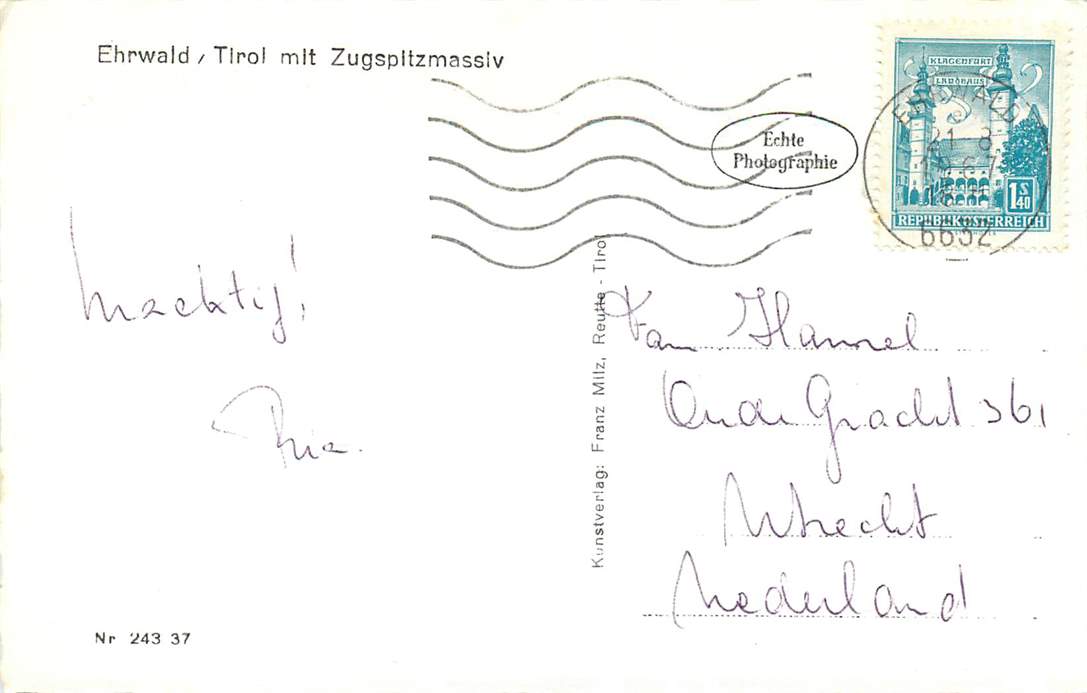 Ehrwald / Tirol mit Zugspitzmassiv
Echte
Photographie
KLAGENFURT
LANDHAUS
1 S 40
REPUBLIK ÖSTERREICH
EHRWALD
21-8
6632
Machtig!
Ria.
Kunstverlag: Franz Milz, Reutte - Tirol
Van Hamel
Oude Gracht 361
Utrecht
Nederland
Nr 243 37